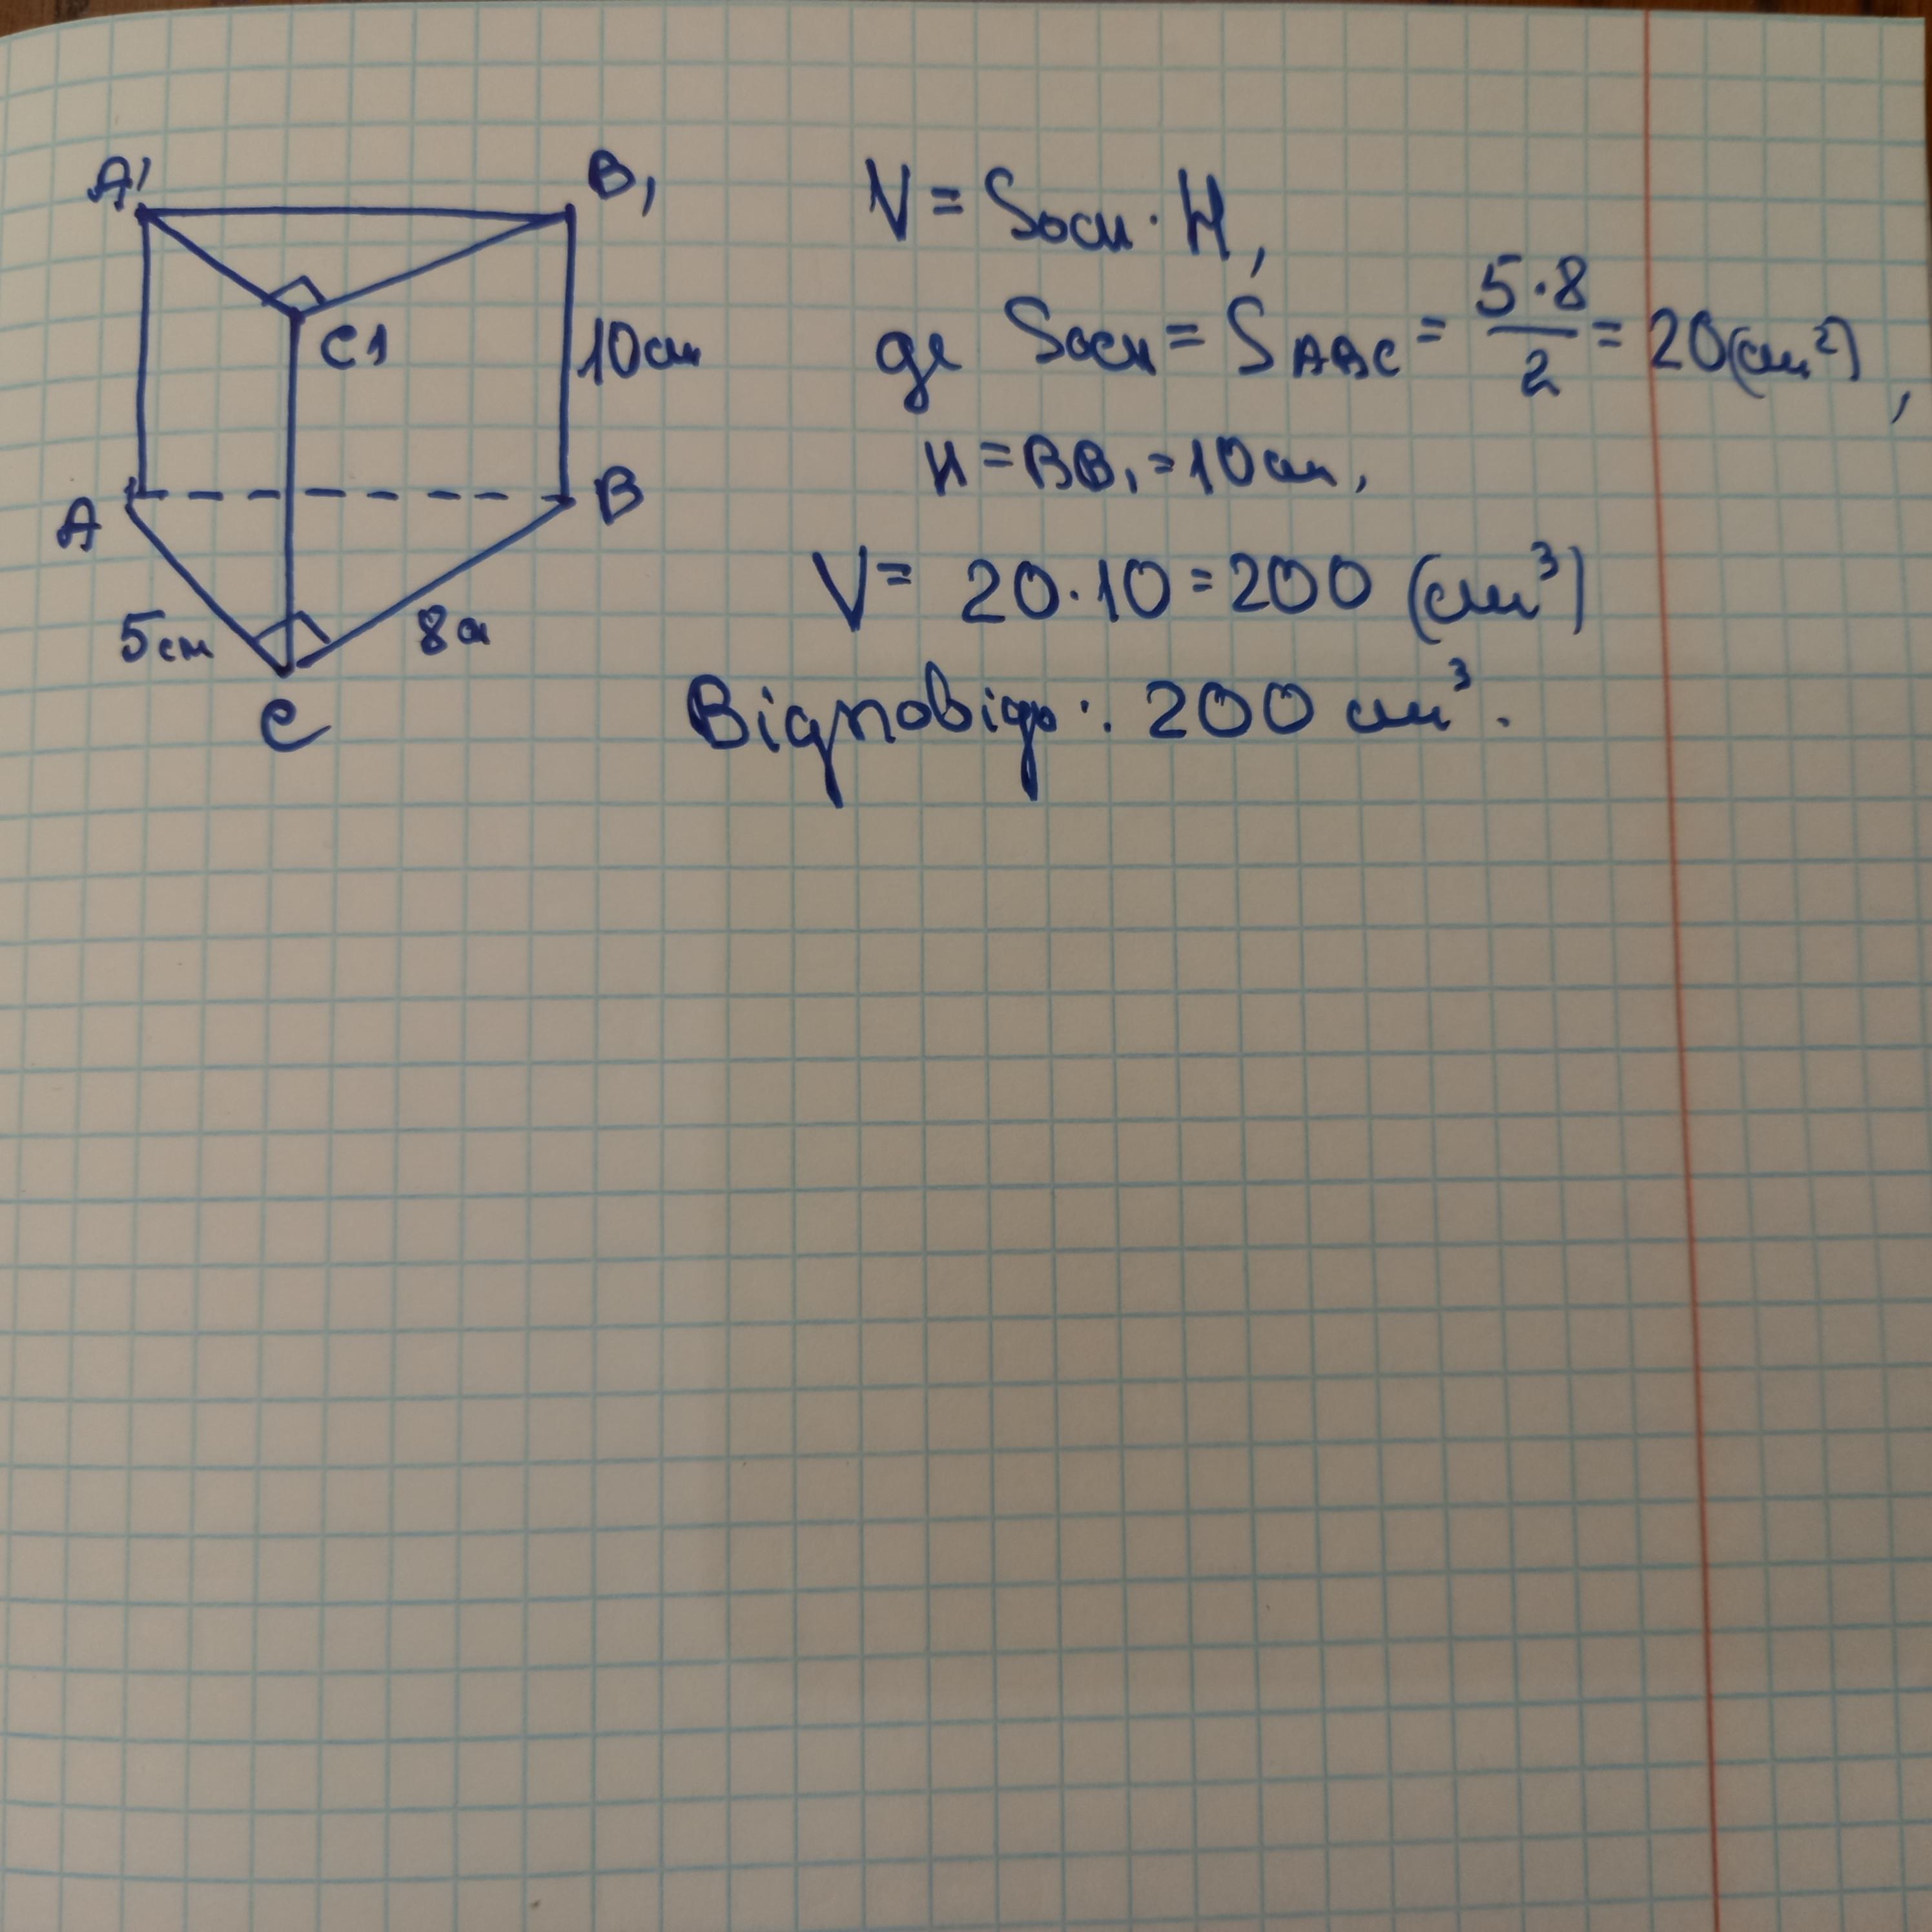 A1
B1
C1
10см
A
B
5см
8см
C
V = Sосн · H,
де Sосн = SABC = 5·8/2 = 20(см²),
H = BB1 = 10см,
V = 20·10 = 200 (см³)
Відповідь: 200 см³.